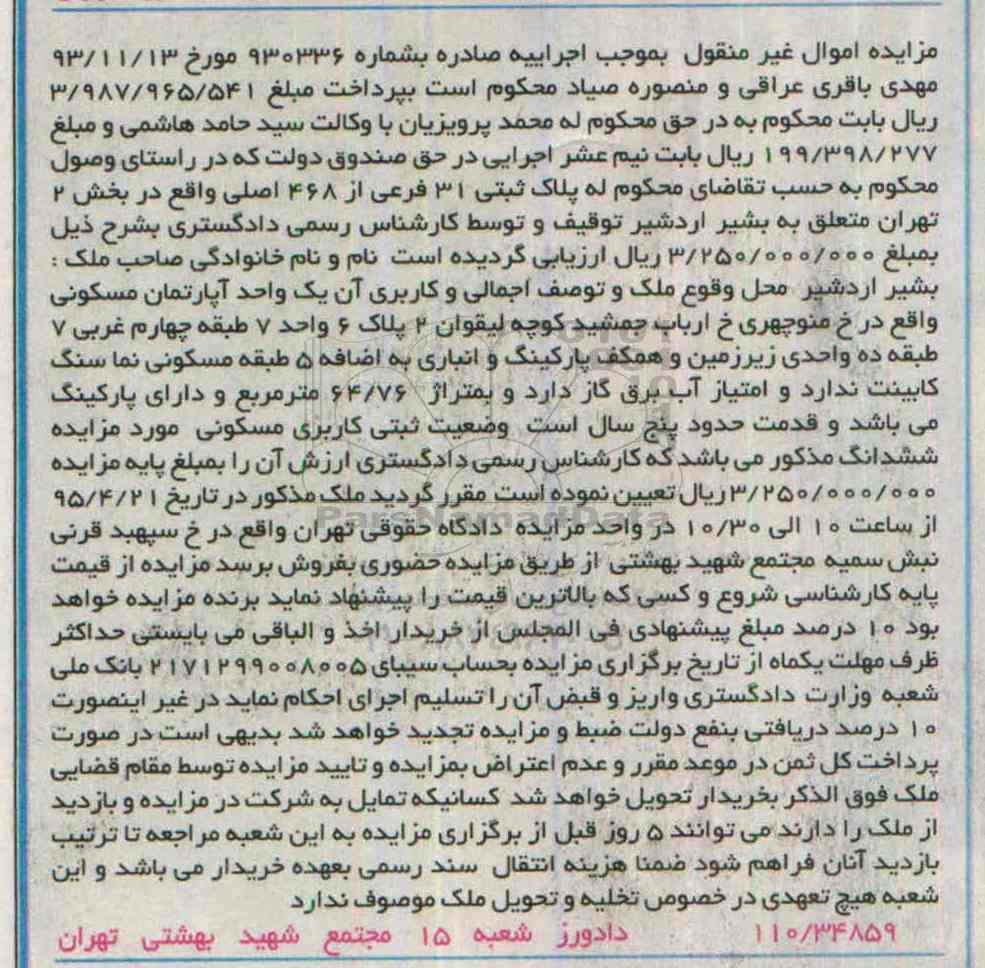 مزایده اموال غیر منقول بموجب اجراییه صادره بشماره ۹۳۰۳۳۶ مورخ ۹۳/۱۱/۱۳
مهدی باقری عراقی و منصوره صیاد محکوم است بپرداخت مبلغ ۳/۹۸۷/۹۶۵/۵۴۱
ریال بابت محکوم به در حق محکوم له محمد پرویزیان با وکالت سید حامد هاشمی و مبلغ
۱۹۹/۳۹۸/۲۷۷ ریال بابت نیم عشر اجرایی در حق صندوق دولت که در راستای وصول
محکوم به حسب تقاضای محکوم له پلاک ثبتی ۳۱ فرعی از ۴۶۸ اصلی واقع در بخش ۲
تهران متعلق به بشیر اردشیر توقیف و توسط کارشناس رسمی دادگستری بشرح ذیل
بمبلغ ۳/۲۵۰/۰۰۰/۰۰۰ ریال ارزیابی گردیده است نام و نام خانوادگی صاحب ملک :
بشیر اردشیر محل وقوع ملک و توصف اجمالی و کاربری آن یک واحد آپارتمان مسکونی
واقع در خ منوچهری خ ارباب جمشید کوچه لیقوان ۲ پلاک ۶ واحد ۷ طبقه چهارم غربی ۷
طبقه ده واحدی زیرزمین و همکف پارکینگ و انباری به اضافه ۵ طبقه مسکونی نما سنگ
کابینت ندارد و امتیاز آب برق گاز دارد و بمتراژ ۶۴/۷۶ مترمربع و دارای پارکینگ
می باشد و قدمت حدود پنج سال است وضعیت ثبتی کاربری مسکونی مورد مزایده
ششدانگ مذکور می باشد که کارشناس رسمی دادگستری ارزش آن را بمبلغ پایه مزایده
۳/۲۵۰/۰۰۰/۰۰۰ ریال تعیین نموده است مقرر گردید ملک مذکور در تاریخ ۹۵/۴/۲۱
از ساعت ۱۰ الی ۱۰/۳۰ در واحد مزایده دادگاه حقوقی تهران واقع در خ سپهبد قرنی
نبش سمیه مجتمع شهید بهشتی از طریق مزایده حضوری بفروش برسد مزایده از قیمت
پایه کارشناسی شروع و کسی که بالاترین قیمت را پیشنهاد نماید برنده مزایده خواهد
بود ۱۰ درصد مبلغ پیشنهادی فی المجلس از خریدار اخذ و الباقی می بایستی حداکثر
ظرف مهلت یکماه از تاریخ برگزاری مزایده بحساب سیبای ۲۱۷۱۲۹۹۰۰۸۰۰۵ بانک ملی
شعبه وزارت دادگستری واریز و قبض آن را تسلیم اجرای احکام نماید در غیر اینصورت
۱۰ درصد دریافتی بنفع دولت ضبط و مزایده تجدید خواهد شد بدیهی است در صورت
پرداخت کل ثمن در موعد مقرر و عدم اعتراض بمزایده و تایید مزایده توسط مقام قضایی
ملک فوق الذکر بخریدار تحویل خواهد شد کسانیکه تمایل به شرکت در مزایده و بازدید
از ملک را دارند می توانند ۵ روز قبل از برگزاری مزایده به این شعبه مراجعه تا ترتیب
بازدید آنان فراهم شود ضمنا هزینه انتقال سند رسمی بعهده خریدار می باشد و این
شعبه هیچ تعهدی در خصوص تخلیه و تحویل ملک موصوف ندارد
۱۱۰/۳۴۸۵۹ دادورز شعبه ۱۵ مجتمع شهید بهشتی تهران
ParsNamadData